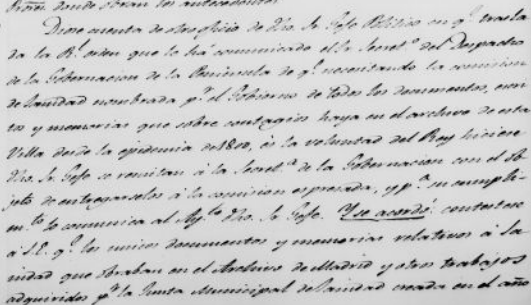 donde obran los antecedentes.
Diose cuenta de otro oficio de dho. Sr. Gefe Politico en q.e trasla
da la R.l orden que le há comunicado el Sr. Secret.o del Despacho
de la Gobernacion de la Peninsula de q.e necesitando la comision
de Sanidad nombrada p.r el Gobierno de todos los documentos, escri
tos y memorias que sobre contagios haya en el archivo de esta
Villa desde la epidemia de 1800, és la voluntad del Rey hiciese
dho. Sr. Gefe se remitan á la Secret.a de la Gobernacion con el Ob
jeto de entregarselos á la comision espresada, y p.a su cumpli-
m.to lo comunica al Ay.to dho. Sr. Gefe. Y se acordó: contestese
á S.E. q.e los unicos documentos y memorias relativos á la
nidad que obraban en el Archivo de Madrid y otros trabajos
adquiridos p.r la Junta Municipal de Sanidad creada en el año